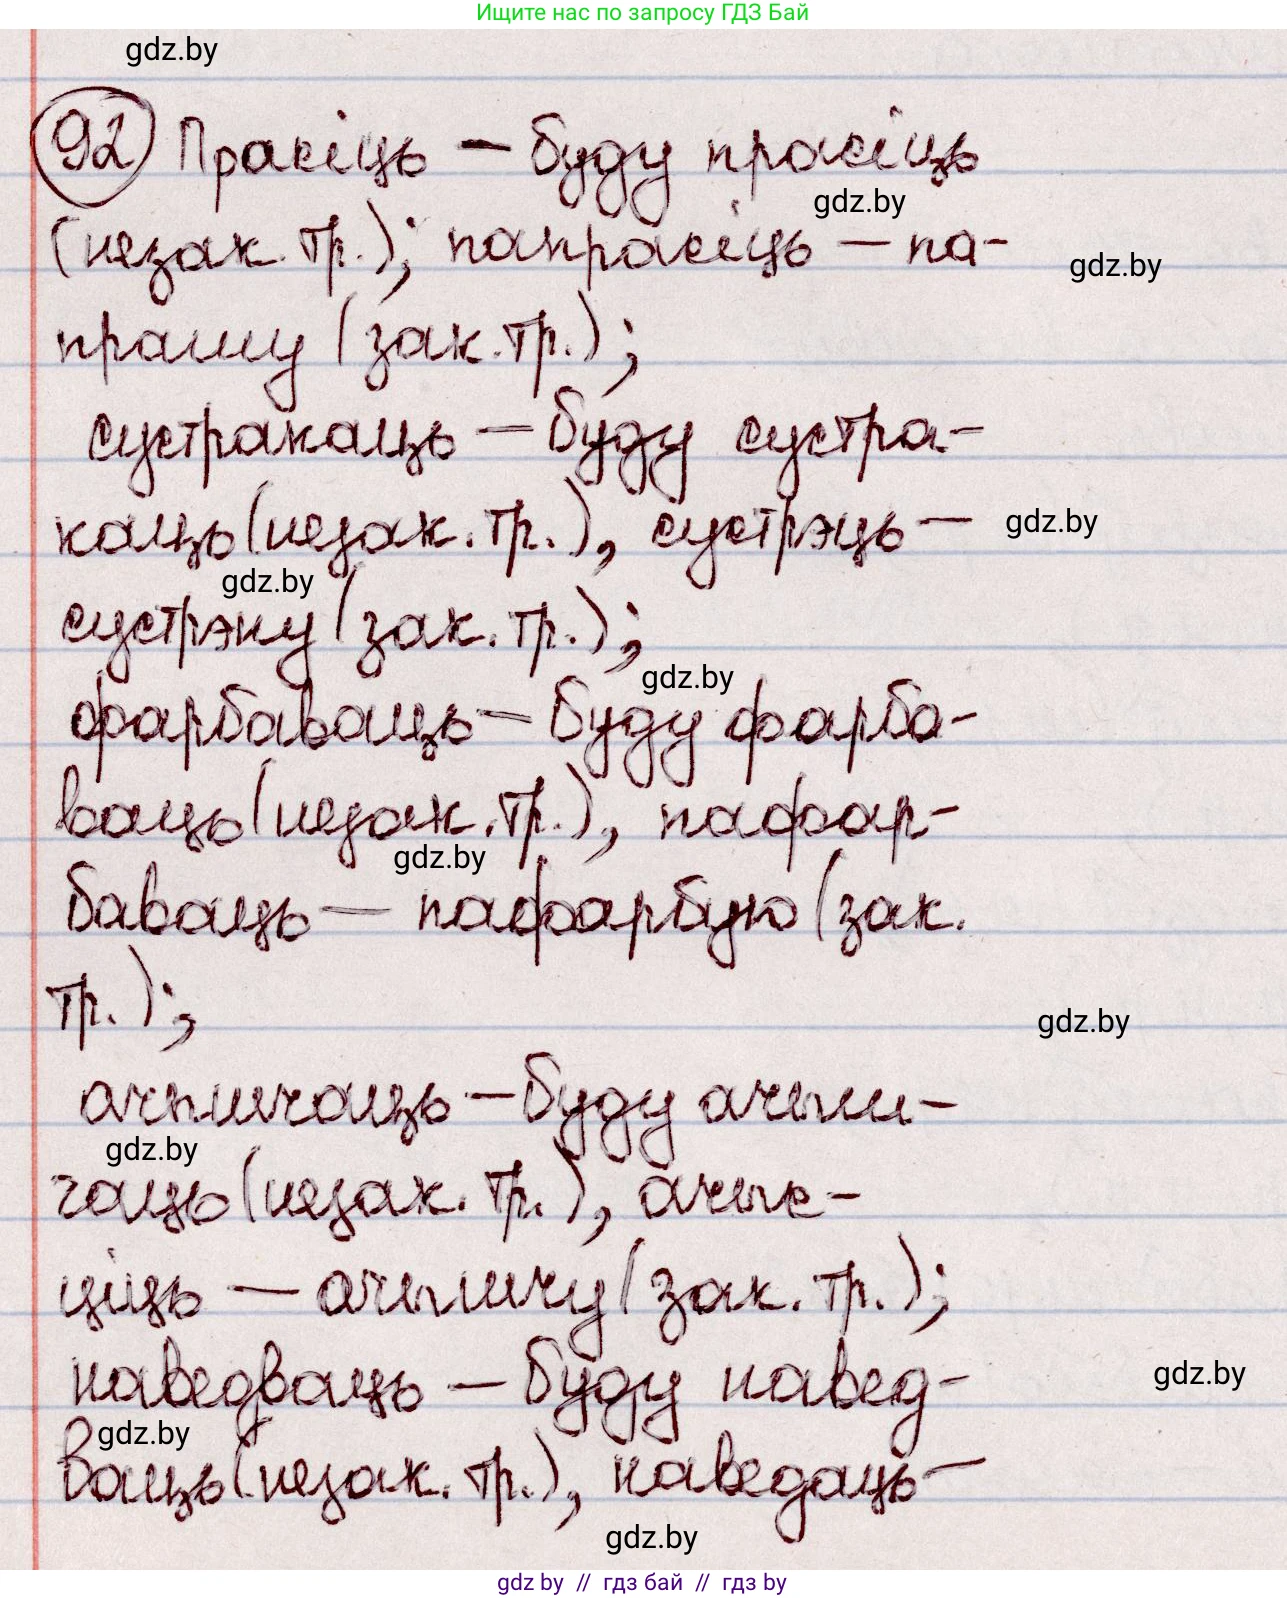 Ищите нас по запросу ГДЗ Бай
gdz.by
92 Прасіць – буду прасіць
gdz.by
(незак. тр.); папрасіць – па-
gdz.by
прашу (зак. тр.);
сустракаць – буду сустра-
каць (незак. тр.), сустрэць –
gdz.by
gdz.by
сустрэну (зак. тр.);
gdz.by
фарбаваць – буду фарба-
ваць (незак. тр.), пафар-
gdz.by
баваць – пафарбую (зак.
тр.);
gdz.by
ачышчаць – буду ачыш-
gdz.by
чаць (незак. тр.), ачыс-
ціць – ачышчу (зак. тр.);
наведваць – буду навед-
gdz.by
gdz.by
ваць (незак. тр.), наведаць –
gdz.by
gdz by // гдз бай // гдз by